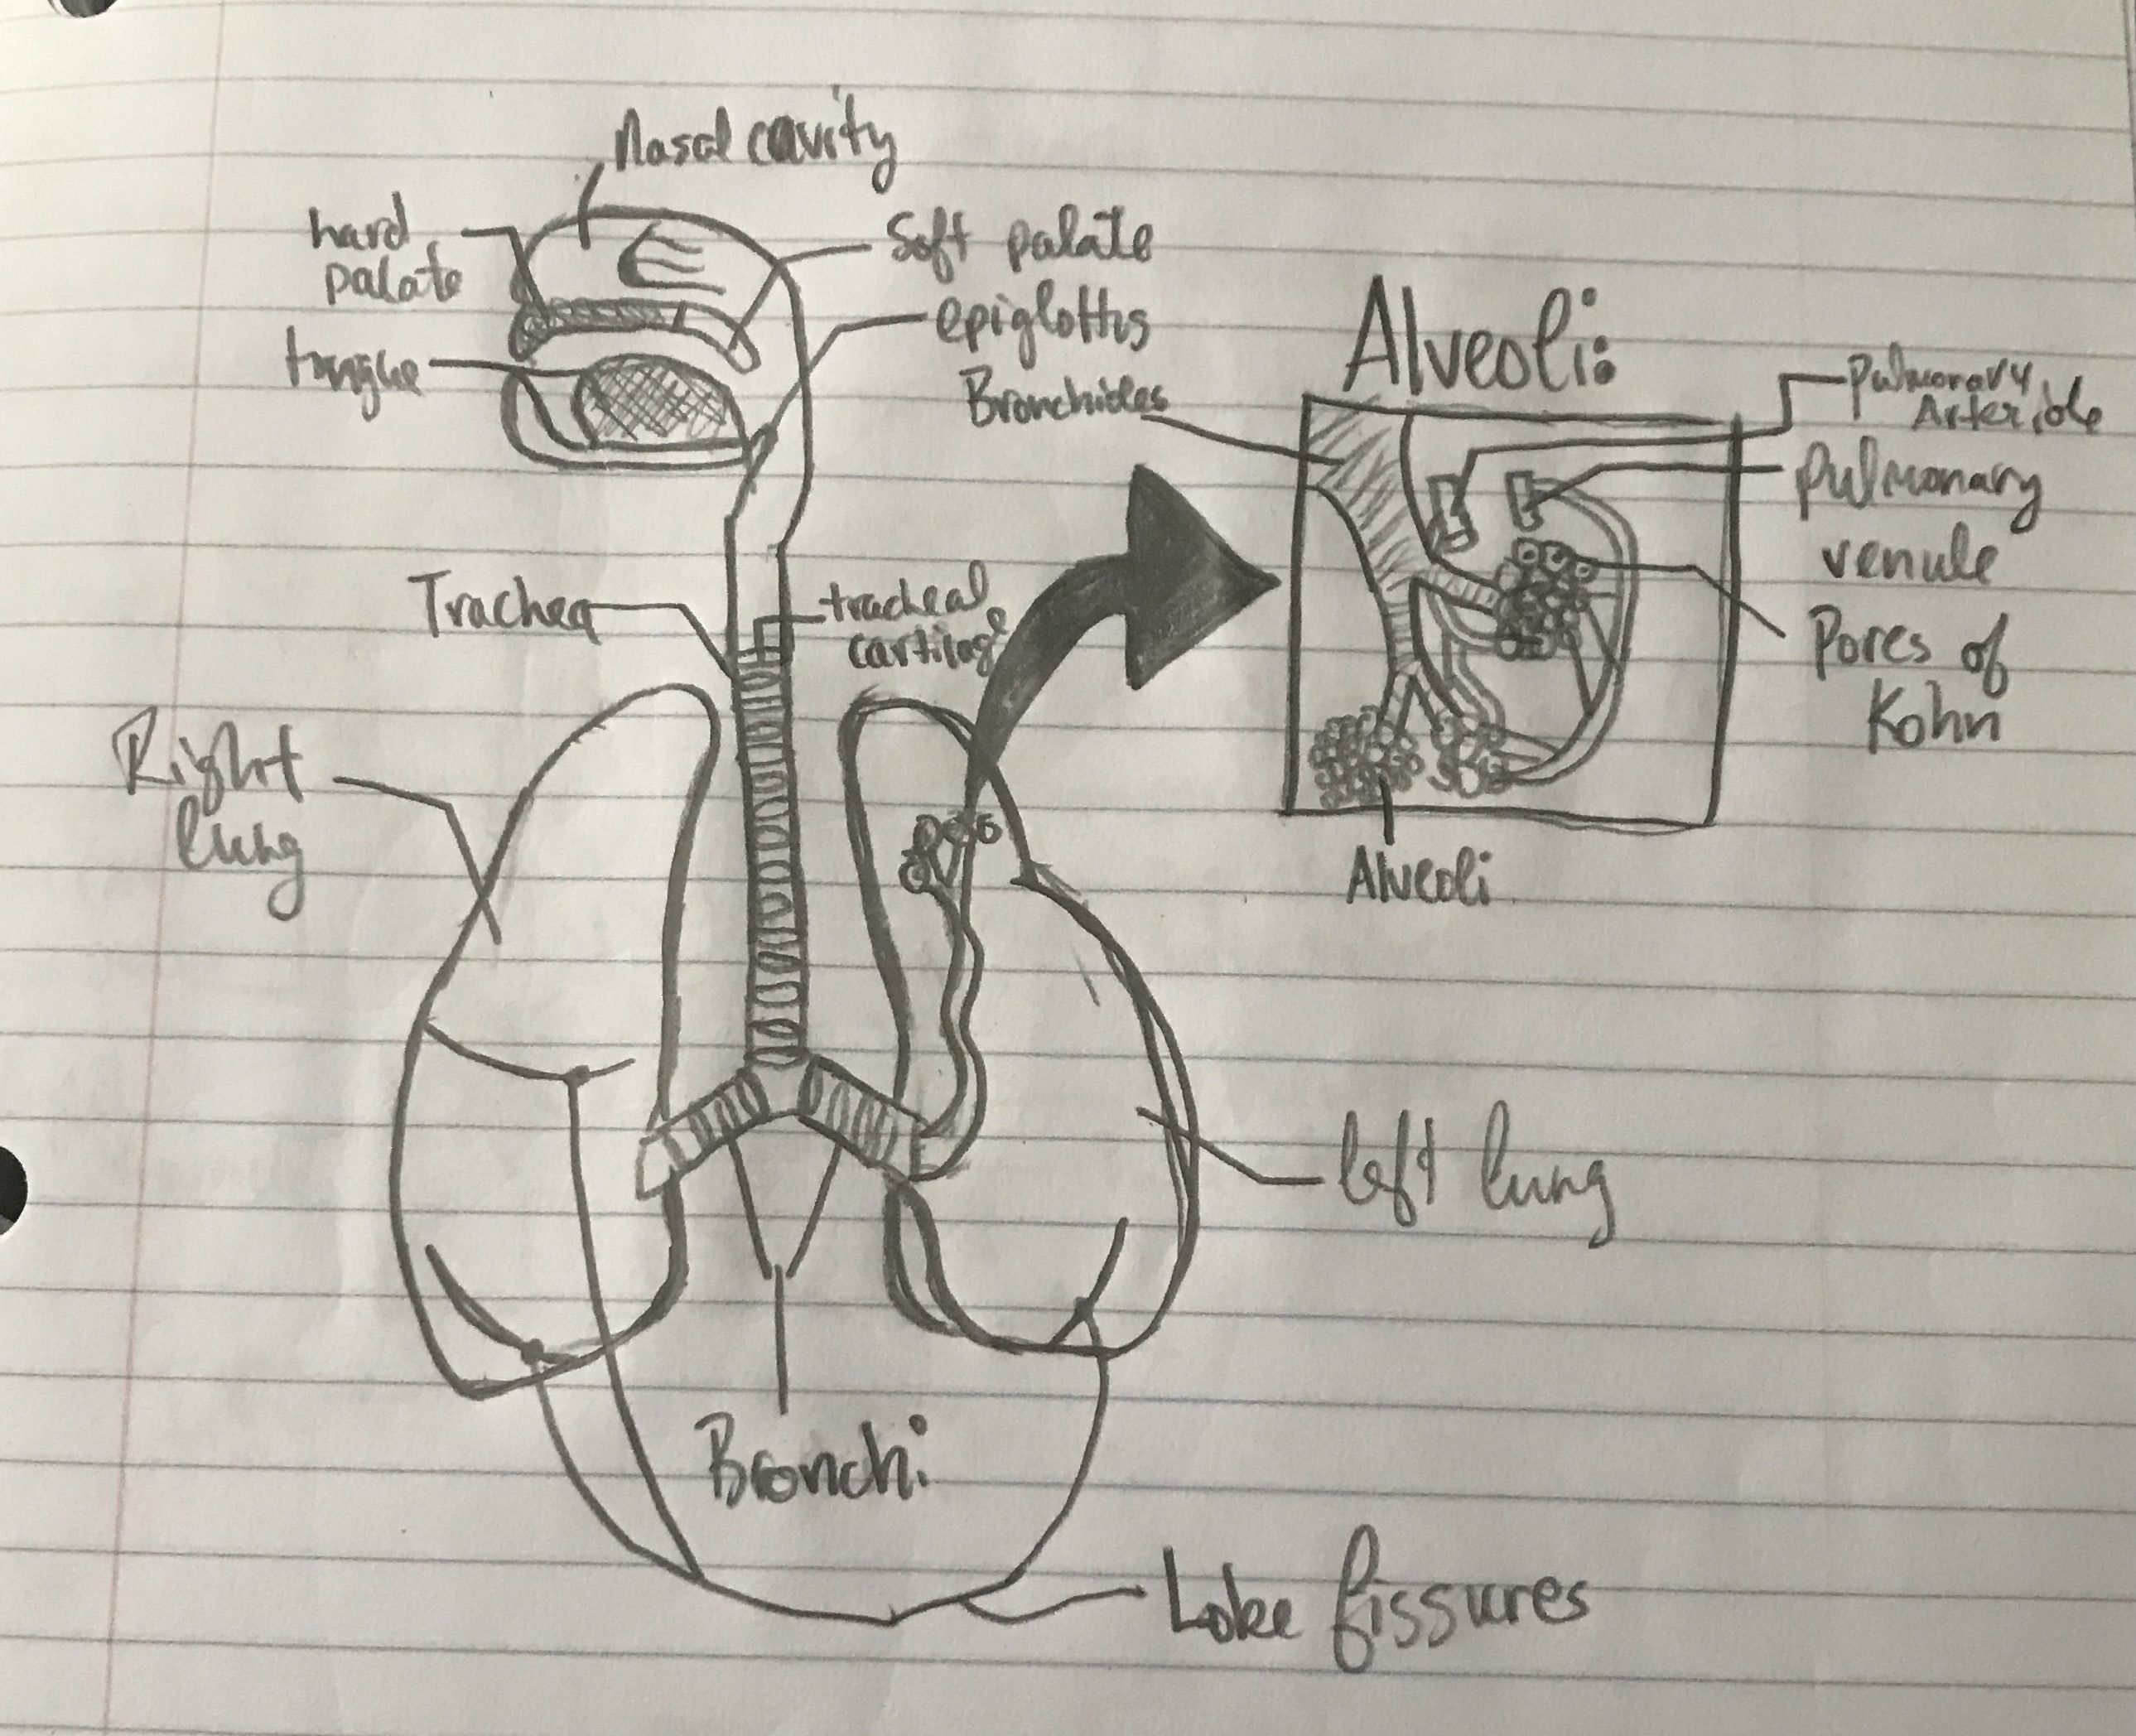 Nasal cavity
hard
palate
Soft palate
tongue
epiglottis
Bronchioles
Alveoli:
Pulmonary
Arteriole
Pulmonary
venule
Pores of
Kohn
Trachea
tracheal
cartilage
Right
lung
Alveoli
left lung
Bronchi
Lobe fissures